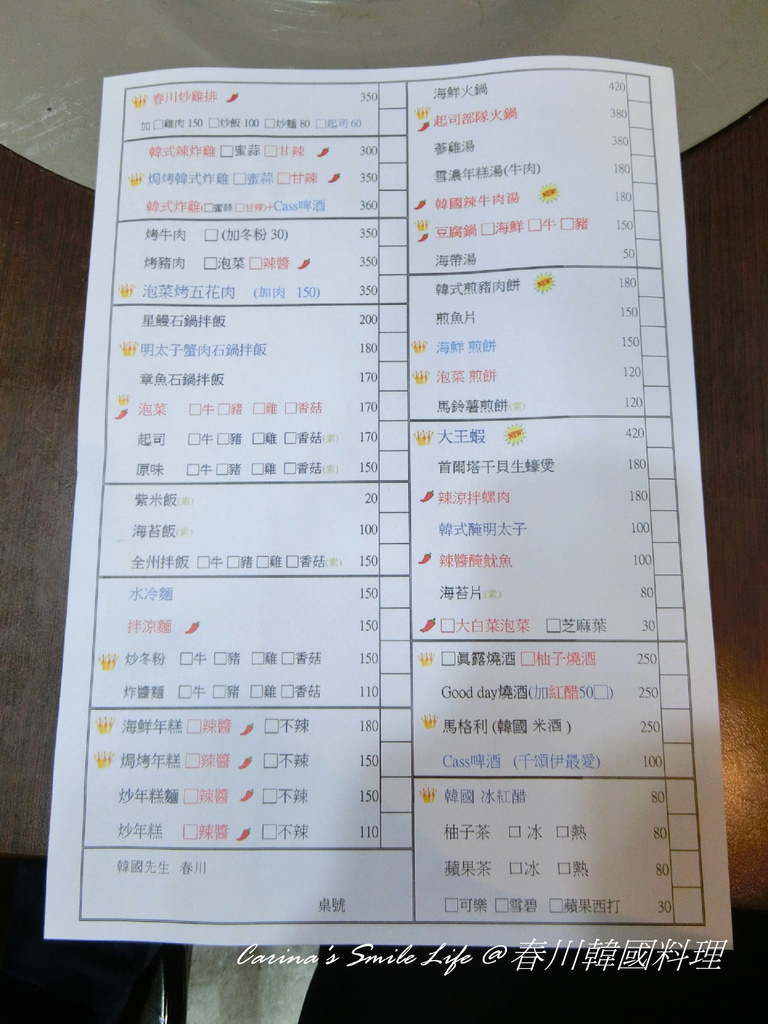 春川炒雞排 350
加 □雞肉 150 □炒飯 100 □炒麵 80 □起司 60
韓式辣炸雞 □蜜蒜 □甘辣 300
焗烤韓式炸雞 □蜜蒜 □甘辣 350
韓式炸雞(□蜜蒜 □甘辣)+Cass啤酒 360
烤牛肉 □ (加冬粉 30) 350
烤豬肉 □泡菜 □辣醬 350
泡菜烤五花肉 (加肉 150) 350
星鰻石鍋拌飯 200
明太子蟹肉石鍋拌飯 180
章魚石鍋拌飯 170
泡菜 □牛 □豬 □雞 □香菇 170
起司 □牛 □豬 □雞 □香菇(素) 170
原味 □牛 □豬 □雞 □香菇(素) 150
紫米飯(素) 20
海苔飯(素) 100
全州拌飯 □牛 □豬 □雞 □香菇(素) 150
水冷麵 150
拌涼麵 150
炒冬粉 □牛 □豬 □雞 □香菇 150
炸醬麵 □牛 □豬 □雞 □香菇 110
海鮮年糕 □辣醬 □不辣 180
焗烤年糕 □辣醬 □不辣 150
炒年糕麵 □辣醬 □不辣 150
炒年糕 □辣醬 □不辣 110
韓國先生 春川
桌號
海鮮火鍋 420
起司部隊火鍋 380
蔘雞湯 380
雪濃年糕湯(牛肉) 180
韓國辣牛肉湯 NEW 180
豆腐鍋 □海鮮 □牛 □豬 150
海帶湯 50
韓式煎豬肉餅 NEW 180
煎魚片 150
海鮮 煎餅 150
泡菜 煎餅 120
馬鈴薯煎餅(素) 120
大王蝦 NEW 420
首爾塔干貝生蠔煲 180
辣涼拌螺肉 180
韓式醃明太子 100
辣醬醃魷魚 100
海苔片(素) 80
□大白菜泡菜 □芝麻葉 30
□真露燒酒 □柚子燒酒 250
Good day燒酒(加紅醋50□) 250
馬格利 (韓國 米酒 ) 250
Cass啤酒 (千頌伊最愛) 100
韓國 冰紅醋 80
柚子茶 □ 冰 □熱 80
蘋果茶 □冰 □熱 80
□可樂 □雪碧 □蘋果西打 30
Carina's Smile Life @ 春川韓國料理